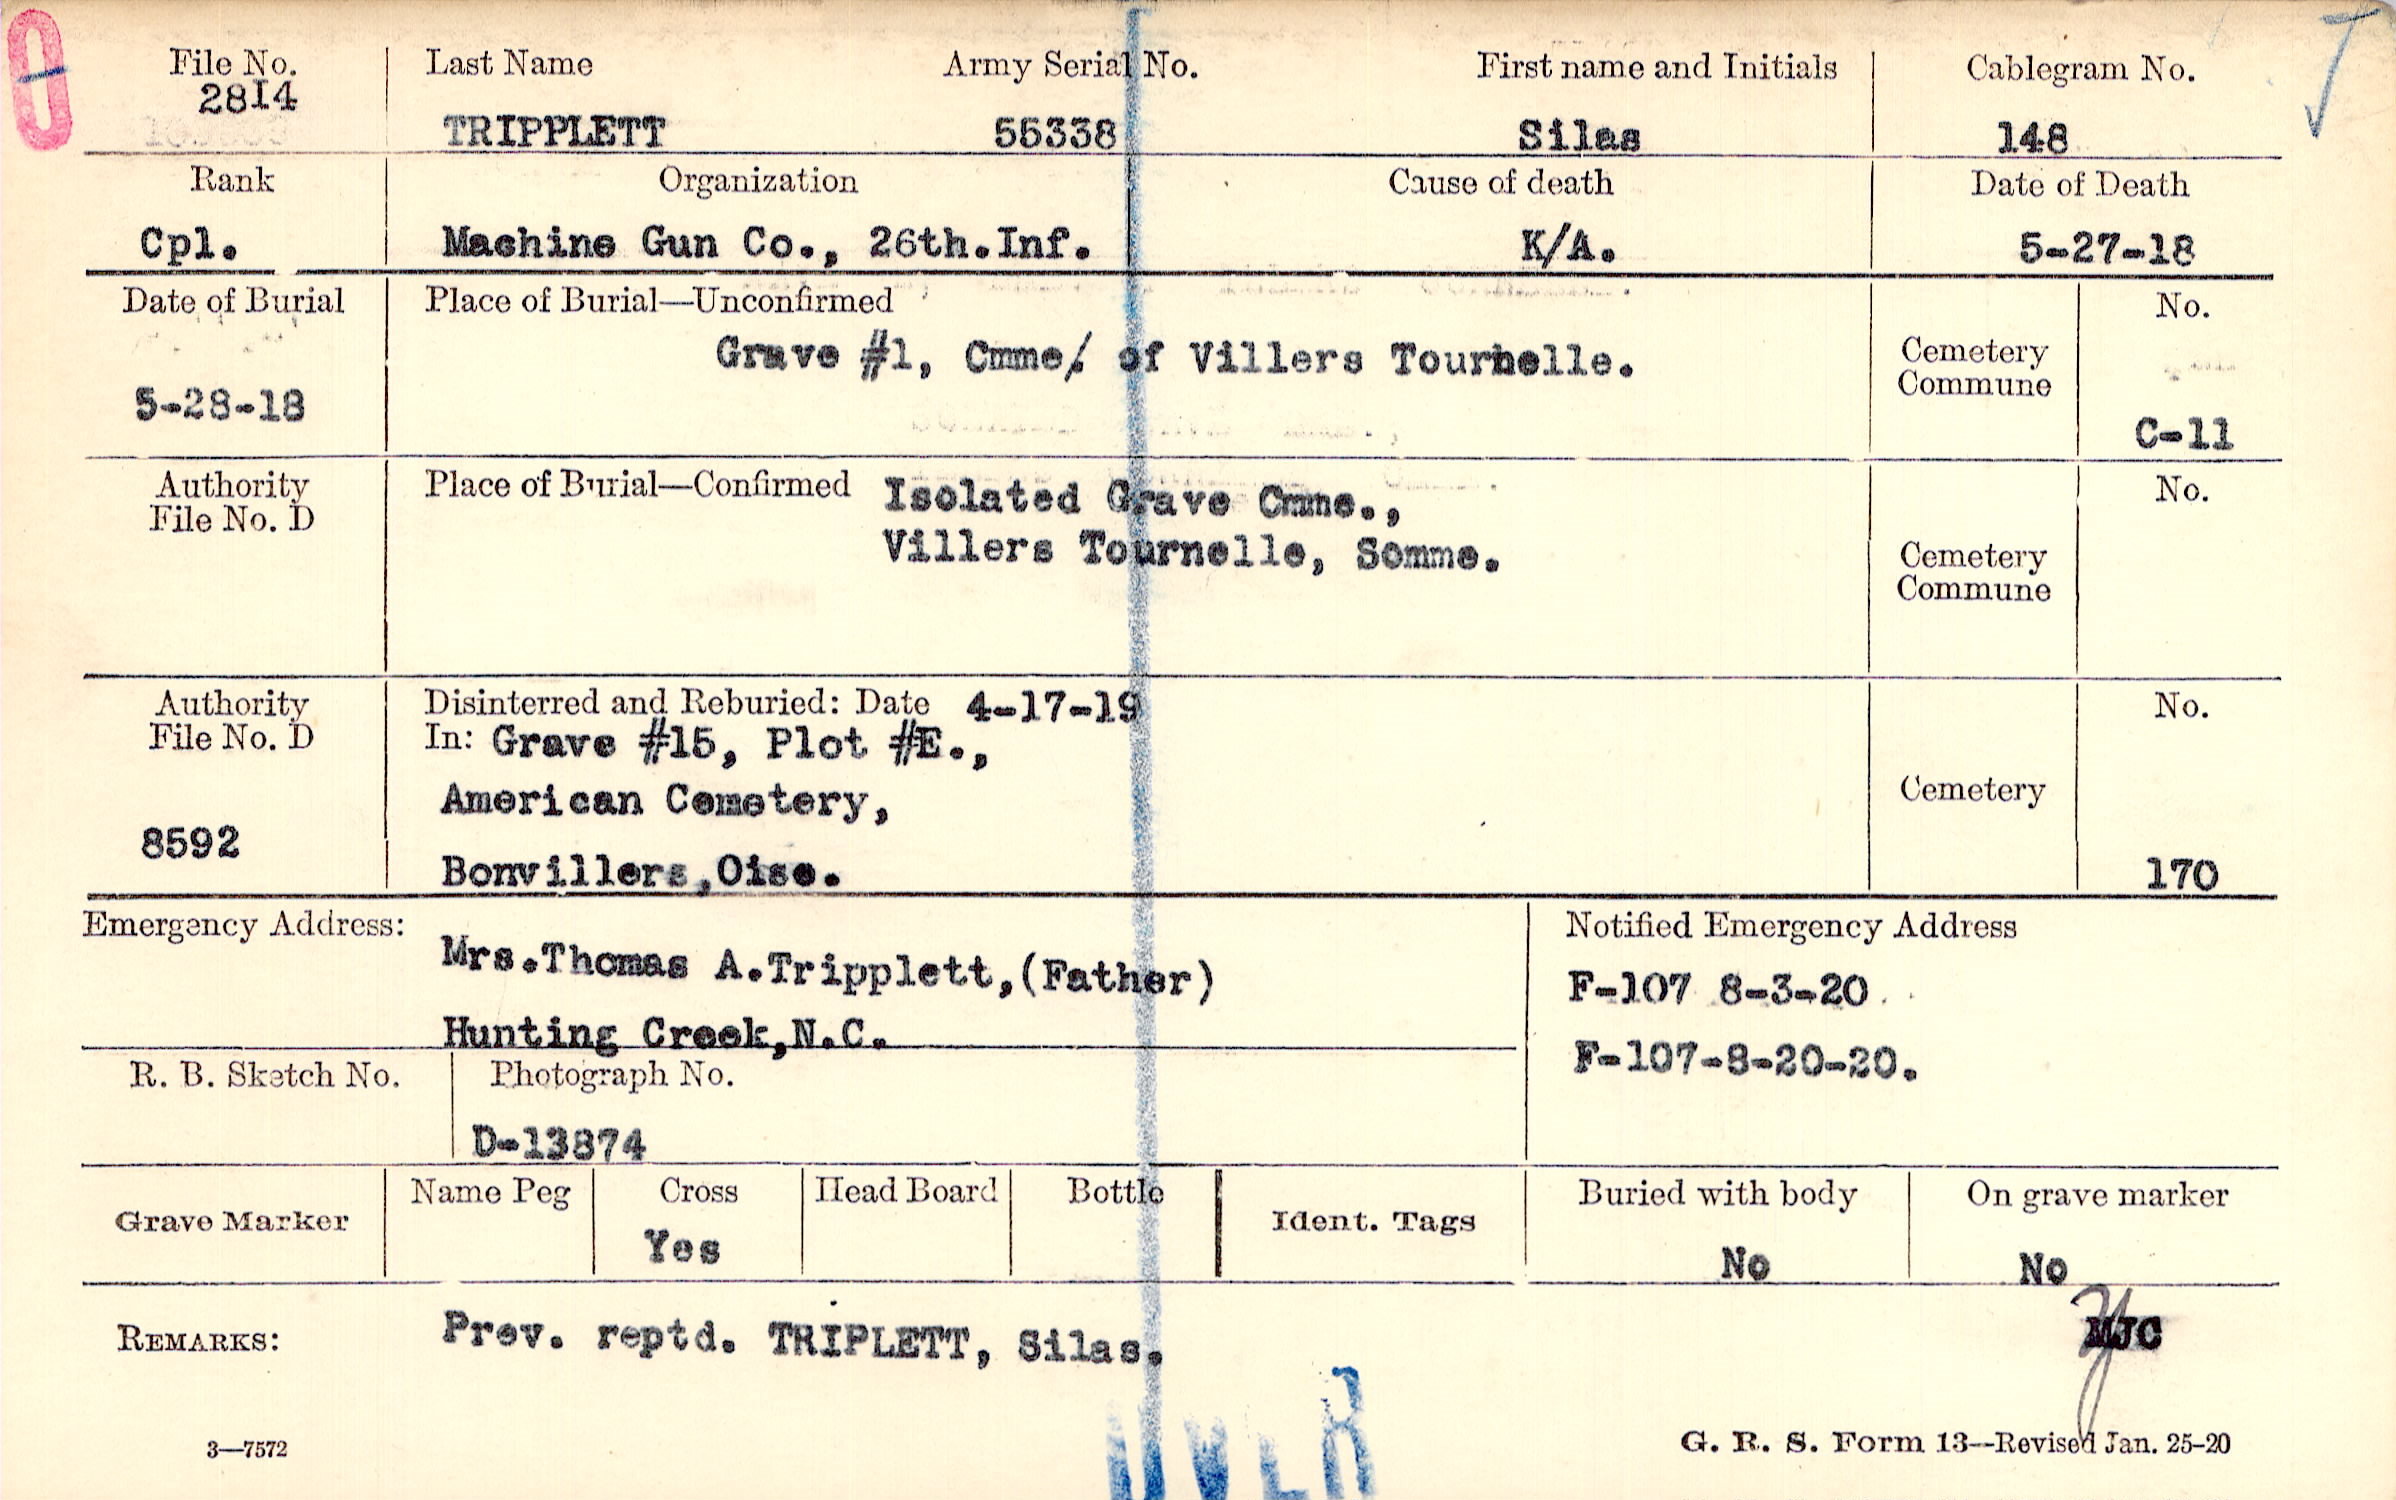 O
File No. Last Name Army Serial No. First name and Initials Cablegram No.
2814
TRIPPLETT 55338 Silas 148
Rank Organization Cause of death Date of Death
Cpl. Machine Gun Co., 26th.Inf. K/A. 5-27-18
Date of Burial Place of Burial—Unconfirmed No.
Grave #1, Cmme/. of Villers Tournelle. Cemetery
Commune
5-28-18
C-11
Authority Place of Burial—Confirmed Isolated Grave Cmme., No.
File No. D
Villers Tournelle, Somme. Cemetery
Commune
Authority Disinterred and Reburied: Date 4-17-19 No.
File No. D In: Grave #15, Plot #E.,
American Cemetery, Cemetery
8592
Bonvillers,Oise. 170
Emergency Address: Notified Emergency Address
Mrs.Thomas A.Tripplett,(Father) F-107 8-3-20
Hunting Creek,N.C. F-107-8-20-20.
R. B. Sketch No. Photograph No.
D-13874
Name Peg Cross Head Board Bottle Buried with body On grave marker
Grave Marker Ident. Tags
Yes No No
REMARKS: Prev. reptd. TRIPLETT, Silas. MJC
OVER
3—7572 G. R. S. Form 13—Revised Jan. 25-20